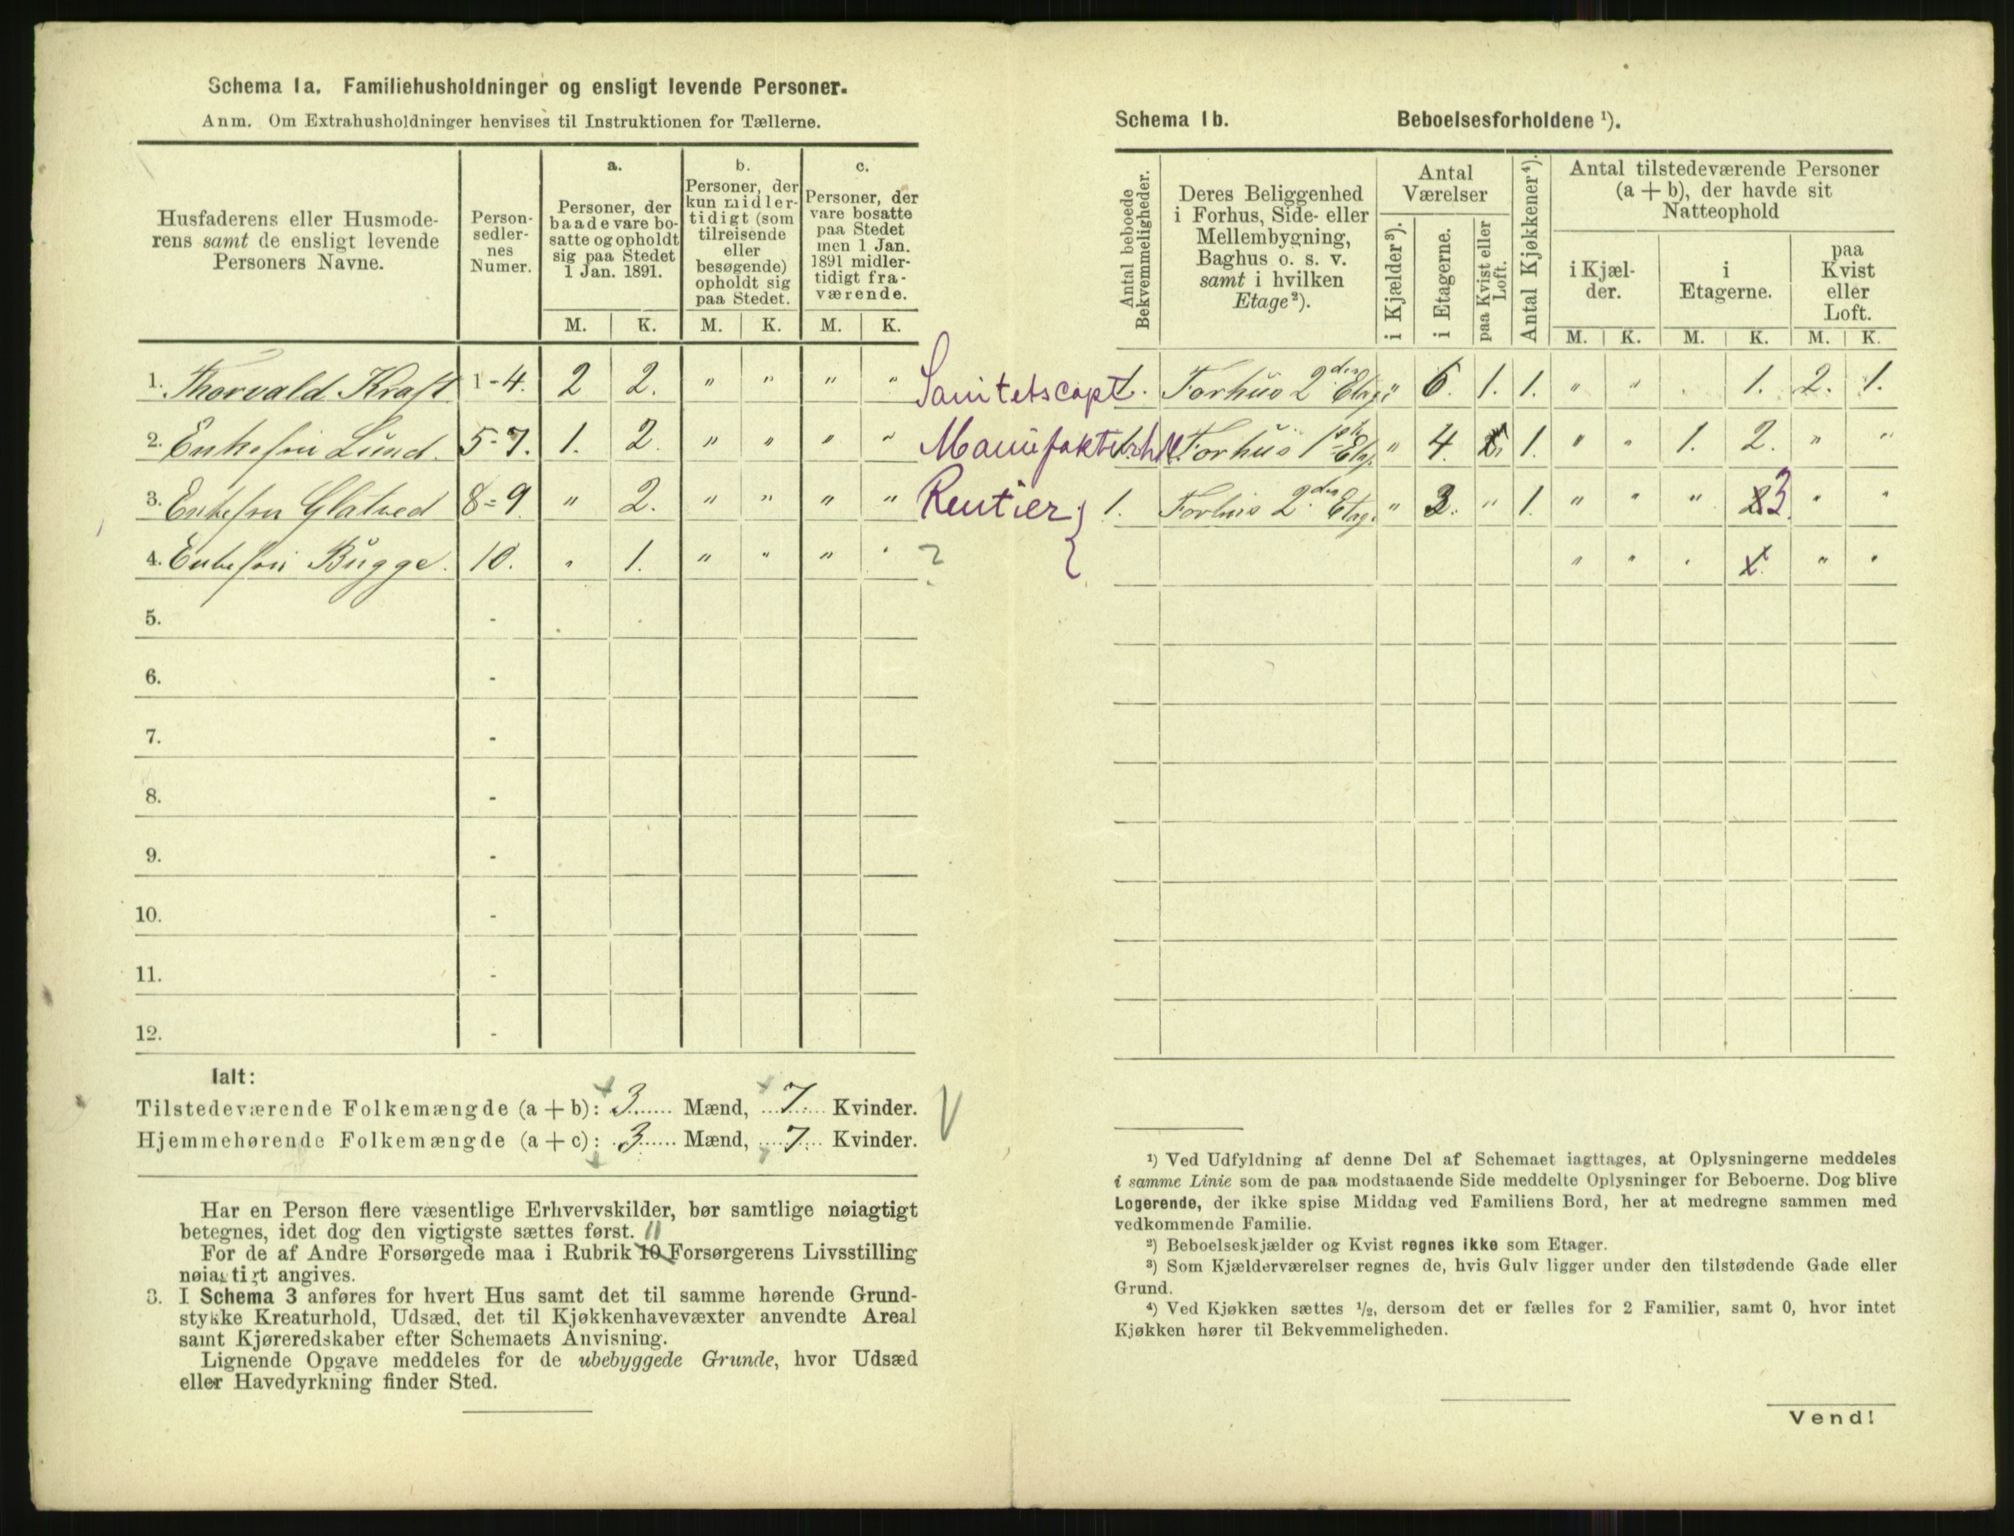 Schema 1a. Familiehusholdninger og ensligt levende Personer.
Anm. Om Extrahusholdninger henvises til Instruktionen for Tællerne.
Husfaderens eller Husmoderens samt de ensligt levende Personers Navne.
Personsedlernes Numer.
a.
Personer, der baade vare bosatte og opholdt sig paa Stedet 1 Jan. 1891.
b.
Personer, der kun midlertidigt (som tilreisende eller besøgende) opholdt sig paa Stedet.
c.
Personer, der vare bosatte paa Stedet men 1 Jan. 1891 midlertidigt fraværende.
M. K. M. K. M. K.
1. Thorvald Kraft 1-4. 2 2. " " " " Sanitetscapt.
2. Enkefru Lund. 5-7. 1. 2. " " " "
3. Enkefru Glatved 8=9. " 2. " " " " Rentier
4. Enkefru Bugge. 10. " 1. " " " " ?
5. -
6. -
7. -
8. -
9. -
10. -
11. -
12. -
Ialt:
Tilstedeværende Folkemængde (a + b): 3 Mænd, 7 Kvinder.
Hjemmehørende Folkemængde (a + c): 3 Mænd, 7 Kvinder.
Har en Person flere væsentlige Erhvervskilder, bør samtlige nøiagtigt
betegnes, idet dog den vigtigste sættes først. 11
For de af Andre Forsørgede maa i Rubrik 10 Forsørgerens Livsstilling
nøiagtigt angives.
3. I Schema 3 anføres for hvert Hus samt det til samme hørende Grund-
stykke Kreaturhold, Udsæd, det til Kjøkkenhavevæxter anvendte Areal
samt Kjøreredskaber efter Schemaets Anvisning.
Lignende Opgave meddeles for de ubebyggede Grunde, hvor Udsæd
eller Havedyrkning finder Sted.
Schema 1b. Beboelsesforholdene ¹).
Antal beboede Bekvemmeligheder.
Deres Beliggenhed i Forhus, Side- eller Mellembygning, Baghus o. s. v. samt i hvilken Etage ²).
Antal Værelser
i Kjælder ³).
i Etagerne.
paa Kvist eller Loft.
Antal Kjøkkener ⁴).
Antal tilstedeværende Personer (a + b), der havde sit Natteophold
i Kjælder.
i Etagerne.
paa Kvist eller Loft.
M. K. M. K. M. K.
1. Forhus 2den Etag. " 6. 1. 1. " " . 1. 2. 1.
1. Forhus 1ste Etag. " 4. 1. " " 1. 2. " "
1. Forhus 2den Etag. " 3. " 1. " " " 3. " "
" " " 1. " "
¹) Ved Udfyldning af denne Del af Schemaet iagttages, at Oplysningerne meddeles
i samme Linie som de paa modstaaende Side meddelte Oplysninger for Beboerne. Dog blive
Logerende, der ikke spise Middag ved Familiens Bord, her at medregne sammen med
vedkommende Familie.
²) Beboelseskjælder og Kvist regnes ikke som Etager.
³) Som Kjælderværelser regnes de, hvis Gulv ligger under den tilstødende Gade eller
Grund.
⁴) Ved Kjøkken sættes ½, dersom det er fælles for 2 Familier, samt 0, hvor intet
Kjøkken hører til Bekvemmeligheden.
Vend!